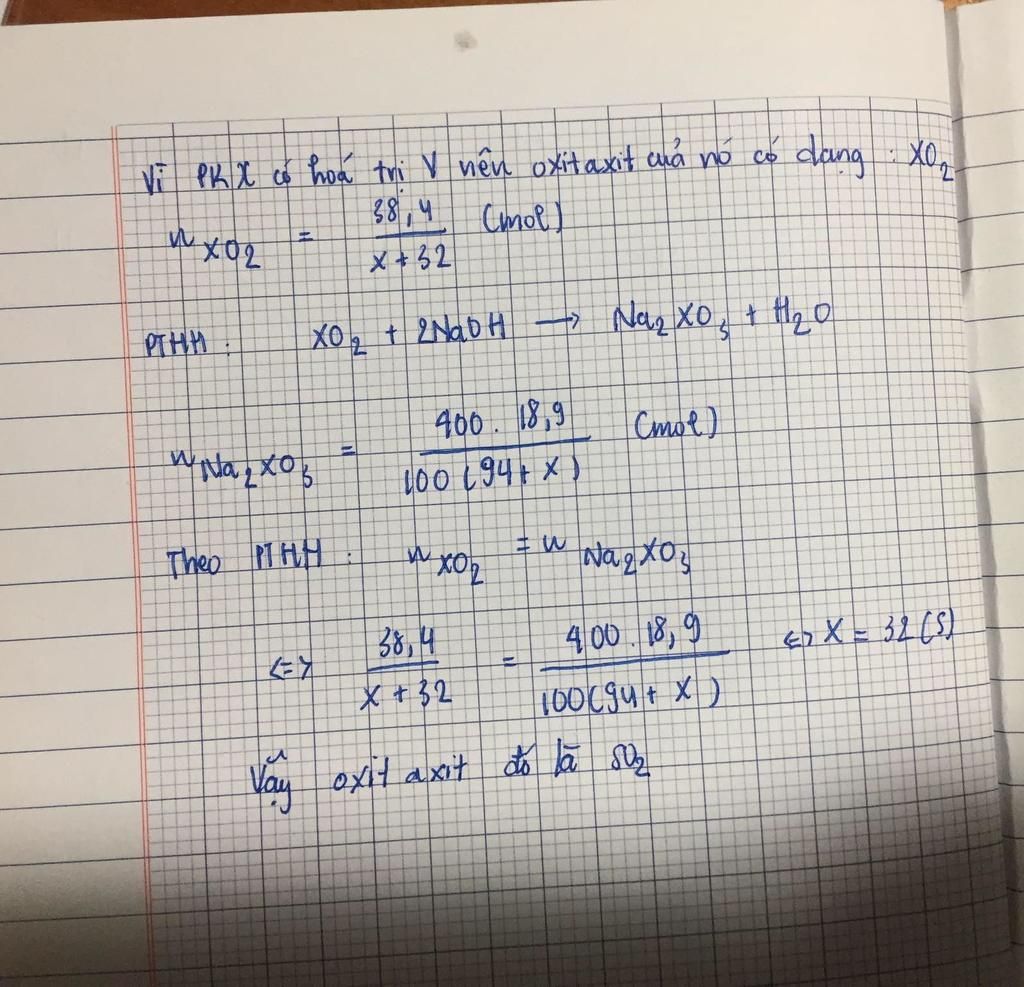 Vì PK X có hoá trị V nên oxit axit cuả nó có dạng : XO2
n XO2 = 38,4 / X + 32 (mol)
PTHH : XO2 + 2NaOH → Na2XO3 + H2O
n Na2XO3 = 400 . 18,9 / 100 (94 + X) (mol)
Theo PTHH : n XO2 = n Na2XO3
<=> 38,4 / X + 32 = 400 . 18,9 / 100(94 + X) <=> X = 32 (S)
Vậy oxit axit đó là SO2